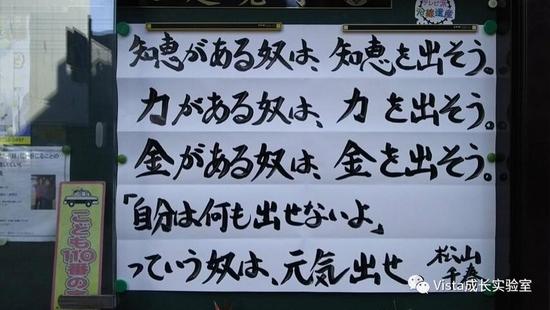 知恵がある奴は、知恵を出そう。
力がある奴は、力を出そう。
金がある奴は、金を出そう。
「自分は何も出せないよ」
っていう奴は、元気出せ
松山
千春
こども110番の
Vista成长实验室